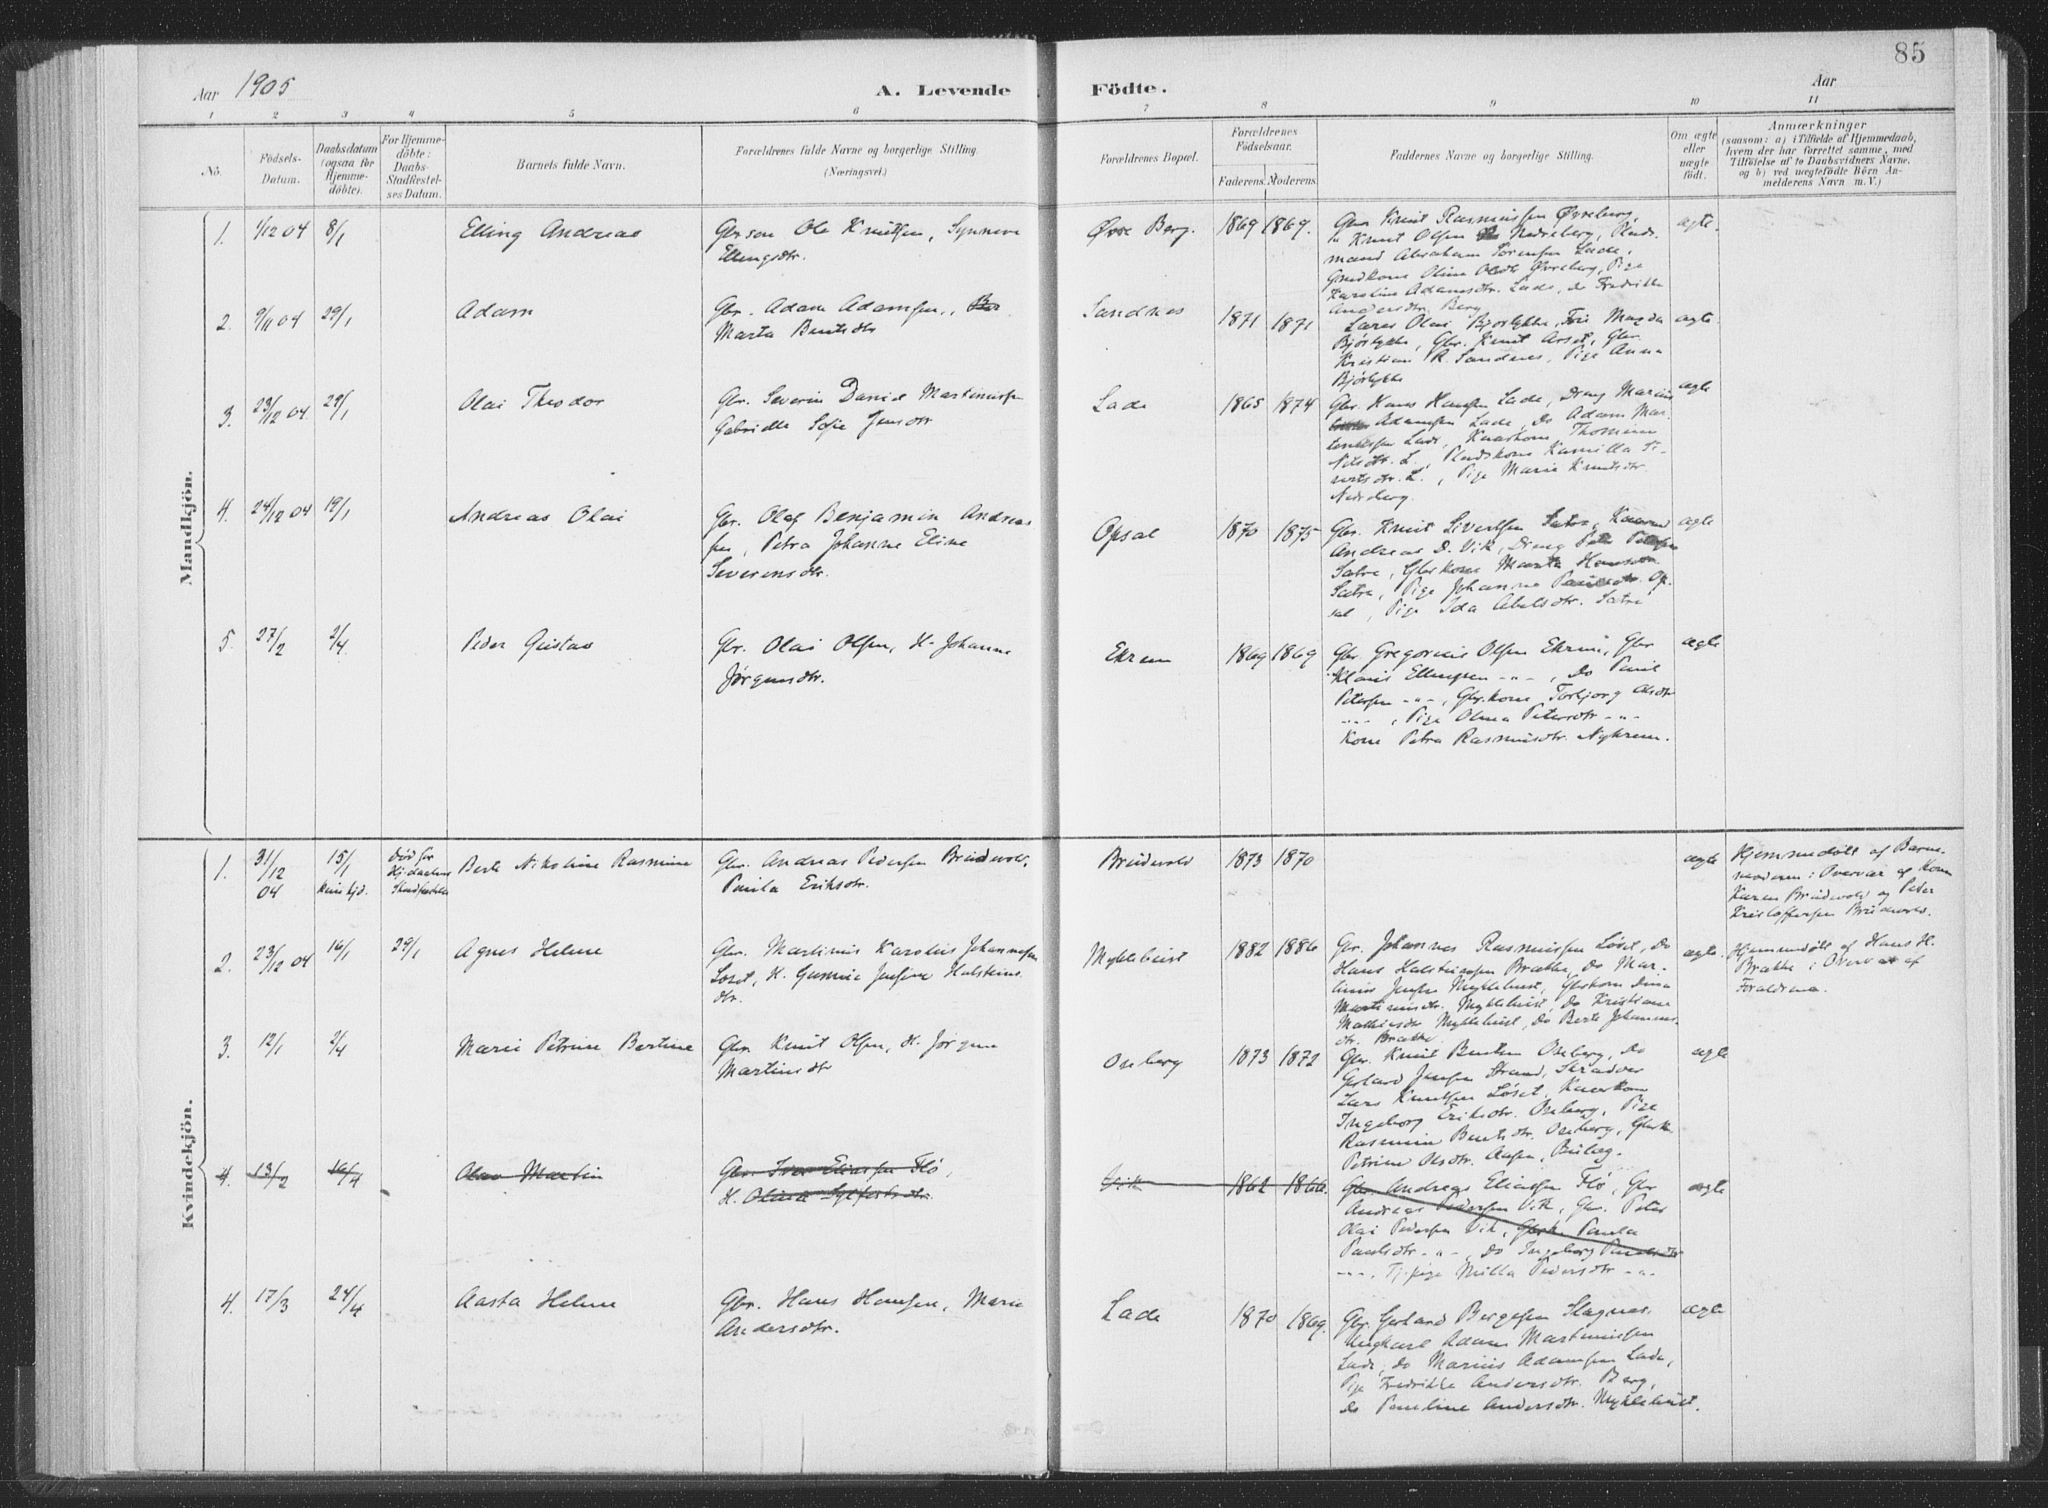 85
Aar 1905
A. Levende
Födte.
Aar
1 2 3 4 5 6 7 8 9 10 11
No.
Födsels-
Datum.
Daabsdatum
(ogsaa for
Hjemme-
döbte).
For Hjemme-
döbte:
Daabs-
Stadfæstel-
ses Datum.
Barnets fulde Navn.
Forældrenes fulde Navne og borgerlige Stilling.
(Næringsvei.)
Forældrenes Bopæl.
Forældrenes
Födselsaar.
Faderens. Moderens.
Faddernes Navne og borgerlige Stilling.
Om ægte
eller
uægte
födt.
Anmærkninger
(saasom: a) i Tilfælde af Hjemmedaab,
hvem der har forrettet samme, med
Tilföielse af to Daabsvidners Navne,
og b) ved uægtefödte Börn An-
melderens Navn m. V.)
Mandkjön.
1. 4/12 04 8/1 Elling Andreas
Gbr. søn Ole Knutsen, Synneve
Ellingsdtr.
Øvre Berg. 1869 1869.
Gbr. Knut Rasmussen Øvreberg,
Knut Olsen Nedreberg, Plads-
mand Abraham Sørensen Lade,
Olsdtr Øvreberg, Pige
Karoline Adamsdtr. Lade, do Fredrikke
Andersdtr. Berg
ægte.
2. 9/11 04 29/1 Adam
Gbr. Adam Adamsen,
Marta Bentsdtr
Sandnes 1871 1871
Lærer Olai Bjørlykke, Frk Magda
Bjørlykke, Gbr. Knut Aaset, Gbr.
Kristian R. Sandnes, Pige Anna
Bjørlykke
ægte.
3. 23/12 04 29/1 Olai Theodor
Gbr. Severin Daniel Martinussen
Gabrielle Sofie Jensdtr
Lade 1865 1874
Gbr. Hans Hansen Lade, Dreng Marius
Adamsen Lade, Do Adam Mar-
tinussen Lade, Thomine
Nilsdtr. L., Pladskone Kamilla Si-
vertsdtr. L., Pige Marie Knutsdtr.
Nedreberg.
ægte
4. 24/12 04 19/1 Andreas Olai
Gbr. Olaf Benjamin Andreas
sen, Petra Johanne Eline
Severinsdtr.
Opsal 1870 1875
Gbr. Knut Sivertsen Sætre,
Andreas D. Vik, Dreng Petersen
Sætre, Gbrkone Marta Hansdtr.
Sætre, Pige Johanne Paulsdtr. Op-
sal, Pige Ida Abelsdtr. Sætre
ægte
5. 27/2 2/4 Peder Gustav
Gbr. Olai Olsen, H. Johanne
Jørgensdtr.
Ekrem 1869 1869
Gbr. Gregorius Olsen Ekrem, Gbr
Klaus Ellingsen -"-, Do Paul
Petersen -"-, Gbr.kone Torbjørg Olsdtr
-"-, Pige Olina Petersdtr -"-
Kone Petra Rasmusdtr. Nyhrem.
ægte
Kvindekjön.
1. 31/12 04 15/1 hjd. Død før
Hj.daabens
Stadfæstelse
Berte Nikoline Rasmine
Gbr. Andreas Pedersen Brudevold,
Paula Eriksdtr.
Brudevold 1873 1870
ægte
Hjemmedøbt af Barne-
moderen i Overvær af Kone
Karen Brudevold og Peder
Kristoffersen Brudevold.
2. 23/12 04 16/1 29/1 Agnes Helene
Gbr. Martinus Karolius Johannesen
Løset, H. Gunnie Josefine Halsteins
dtr.
Myklebust 1882 1886
Gbr. Johannes Rasmussen Løset, Do
Hans Halsteinsen Brække, Do Mar-
tinus Jensen Myklebust, Gbrkone Dina
Martinusdtr. Myklebust, Do Kristiane
Mathiasdtr Myklebust, Do Berte Johannes-
dtr. Brække.
ægte.
Hjemmedøbt af Hans H.
Brække i Overvær af
Forældrene.
3. 12/1 2/4 Marie Petrine Bertine
Gbr. Knut Olsen, H. Jørgine
Martinsdtr
Oseberg 1873 1872
Gbr. Knut Bentsen Oseberg, Do
Gerhard Jensen Strand, Skræder
Lars Knutsen Løset,
Ingeborg Eriksdtr. Oseberg, Pige
Rasmine Bentsdtr. Oseberg, Gbrk.
Petrine Olsdtr.
ægte
4. 13/2 16/4 Olav Martin
Gbr. Iver Eliassen Flø,
H. Oline Sylfestsdtr.
Vik 1862 1866.
Gbr. Andreas Eliassen Flø, Gbr
Andreas Pedersen Vik, Gbr. Peter
Olai Pedersen Vik, Gbrk. Paula
Paulsdtr. -"-, Do Ingeborg Paulsdtr
-"-, Tj.pige Milla Pedersdtr -"-
ægte
4. 17/3 24/4 Aasta Helene
Gbr. Hans Hansen, Marie
Andersdtr.
Lade 1870 1869.
Gbr. Gerhard Bergesen Slagnes
Ungkarl Adam Martinussen
Lade, do Marius Adamsen Lade,
Pige Fredrikke Andersdtr. Berg,
Do Pauline Andersdtr. Myklebust.
ægte